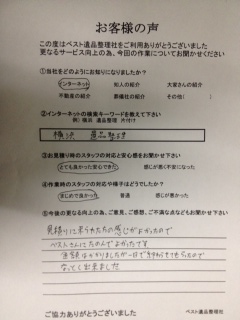 お客様の声
この度はベスト遺品整理社をご利用ありがとうございました
更なるサービス向上の為、今回の作業についてお聞かせください
①当社をどのようにお知りになりましたか？
インターネット 知人の紹介 大家さんの紹介
不動産の紹介 葬儀社の紹介 その他(    )
②インターネットの検索キーワードを教えて下さい
例）横浜 遺品整理 片付け
横浜 遺品整理
③お見積り時のスタッフの対応と安心感をお聞かせ下さい
とても良かった安心できた 普通 感じが悪く不安だった
④作業時のスタッフの対応や様子はどうでしたか？
きわめて良かった 普通 感じが悪かった
⑤今後の更なる向上の為、ご意見、ご感想、ご不満な点などもお聞かせ下さい
見積りに来られた方の感じがよかったので
ベストさんにたのんでよかったです
金額はかかりましたが一日で片付けてもらったので
なっとく出来ました
ご協力ありがとうございました
ベスト遺品整理社